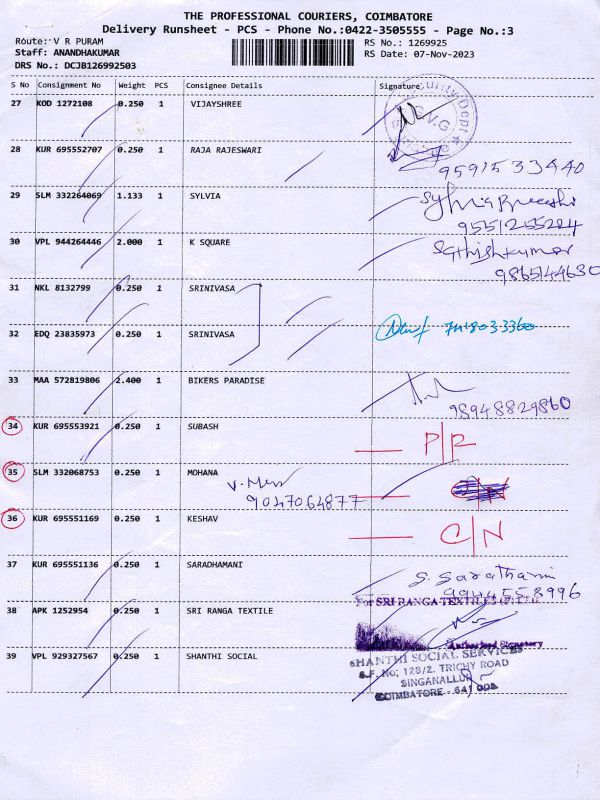 THE PROFESSIONAL COURIERS, COIMBATORE
Delivery Runsheet - PCS - Phone No.:0422-3505555 - Page No.:3
Route: V R PURAM
RS No.: 1269925
Staff: ANANDHAKUMAR
RS Date: 07-Nov-2023
DRS No.: DCJB126992503
S No Consignment No Weight PCS Consignee Details Signature
27 KOD 1272108 0.250 1 VIJAYSHREE
28 KUR 695552707 0.250 1 RAJA RAJESWARI
9591533440
29 SLM 332264069 1.133 1 SYLVIA
9551255224
30 VPL 944264446 2.000 1 K SQUARE Sathishkumar
9865144630
31 NKL 8132799 0.250 1 SRINIVASA
32 EDQ 23835973 0.250 1 SRINIVASA
33 MAA 572819806 2.400 1 BIKERS PARADISE
98948829860
34 KUR 695553921 0.250 1 SUBASH P/R
35 SLM 332068753 0.250 1 MOHANA
9047064877
36 KUR 695551169 0.250 1 KESHAV C/N
37 KUR 695551136 0.250 1 SARADHAMANI
9944558996
For SRI RANGA TEXTILES (P) LTD.
38 APK 1252954 0.250 1 SRI RANGA TEXTILE
Authorised Signatory
39 VPL 929327567 0.250 1 SHANTHI SOCIAL
SHANTHI SOCIAL SERVICES
S.F. No: 128/2. TRICHY ROAD
SINGANALLUR
COIMBATORE - 641 005